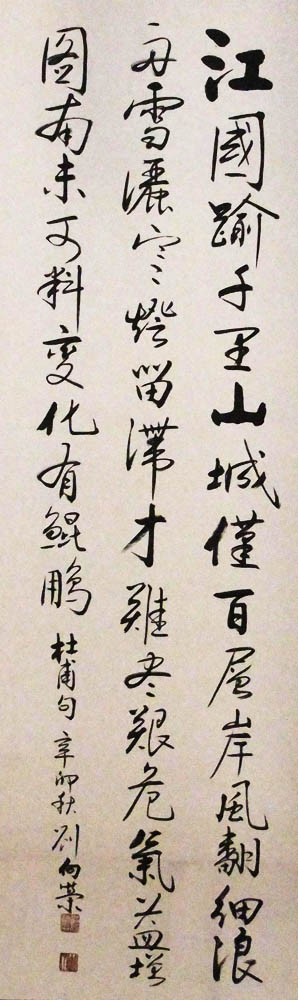 江國踰千里山城僅百層岸風翻細浪
舟雪灑寒燈留滯才難盡艱危氣益增
圖南未可料變化有鯤鵬 杜甫句 辛卯秋 劉向榮